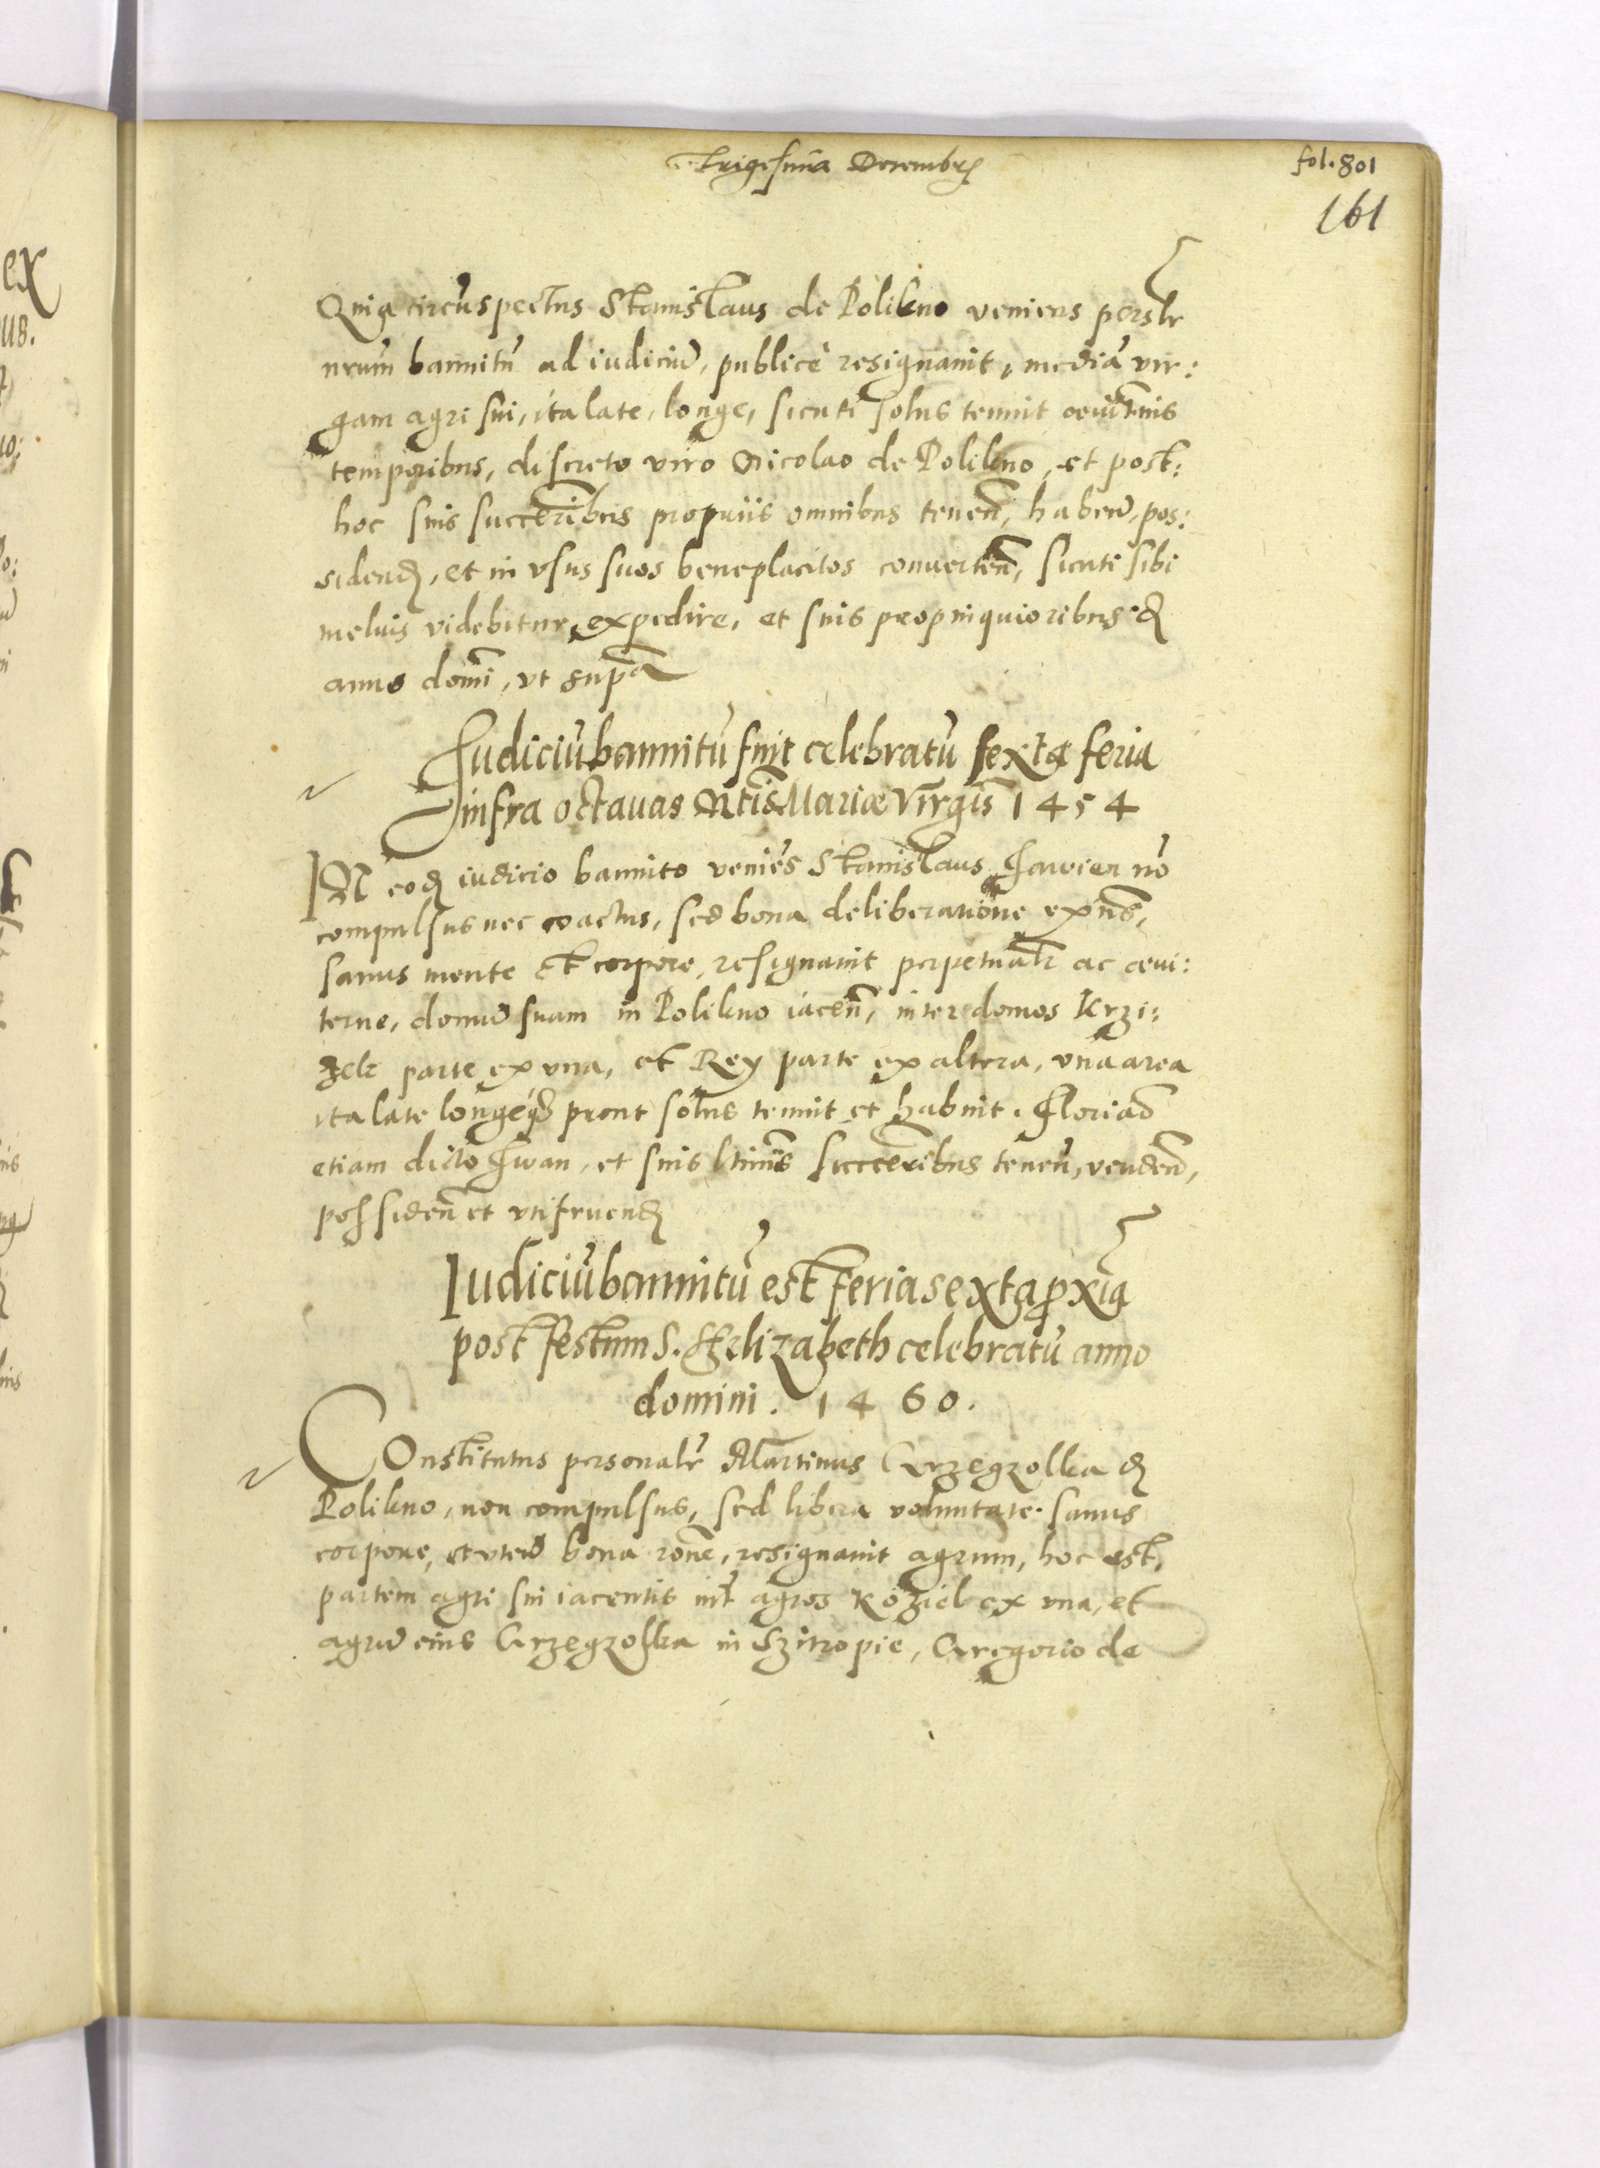 Trigesima Decembr
fol. 801
161
Quia circūspectus Stanislaus de Polikno veniens persōlr
nrum bannitū ad iudiciū, publicè resignauit, mediā vir:
gam agri sui, ita late, longe, sicuti solus tenuit
temporibus, discreto viro Nicolao de Polikno, et post:
hoc suis succēribus propriis omnibus tenen̄, haben̄, pos:
siden̄d, et in vsus suos beneplacitos conuerten̄, sicuti sibi
melius videbitur expedire, et suis propinquioribus
anno domī, vt supra
Iudiciū bannitū fuit celebratū sexta feria
infra octauas Ntīs Mariæ Virgīs 1454
IN eod iudicio bannito veniēs Stanislaus Jawien nō
compulsus nec coactus, sed bona deliberatione exn̄s,
sanus mente et corpore, resignauit perpetualr ac æui:
terne, domū suam in Polikno iacen̄, inter domos Krzi:
zek parte ex vna, et Rey parte ex altera, vna area
ita late longeq3 prout solus tenuit et habuit. Floriāo
etiam dicto Jwan, et suis ltimīs succēribus tenen̄, venden̄,
possiden̄ et vtifruend
Iudiciū bannitū est feria sexta proxīa
post festum S. Helizabeth celebratū anno
domini. 1460.
COnstitutus personalr Martinus Grzegzolka d
Polikno, non compulsus, sed libera voluntate sanus
corpore, et vtens bona rōne, resignauit agrum, hoc est,
partem agri sui iacentis int agros Koziel ex vna, et
agrū eius Grzegzolka in Szitropie, Gregorio de